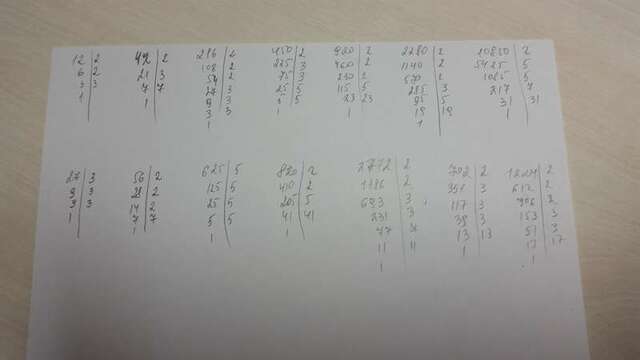 12 | 2
6 | 2
3 | 3
1
42 | 2
21 | 3
7 | 7
1
216 | 2
108 | 2
54 | 2
27 | 3
9 | 3
3 | 3
1
450 | 2
225 | 3
75 | 3
25 | 5
5 | 5
1
920 | 2
460 | 2
230 | 2
115 | 5
23 | 23
1
2280 | 2
1140 | 2
570 | 2
285 | 3
95 | 5
19 | 19
1
10850 | 2
5425 | 5
1085 | 5
217 | 7
31 | 31
1
27 | 3
9 | 3
3 | 3
1
56 | 2
28 | 2
14 | 2
7 | 7
1
625 | 5
125 | 5
25 | 5
5 | 5
1
820 | 2
410 | 2
205 | 5
41 | 41
1
2772 | 2
1386 | 2
693 | 3
231 | 3
77 |
11 | 11
1
702 | 2
351 | 3
117 | 3
39 | 3
13 | 13
1
1224 | 2
612 | 2
306 | 2
153 | 3
51 | 3
17 | 17
1